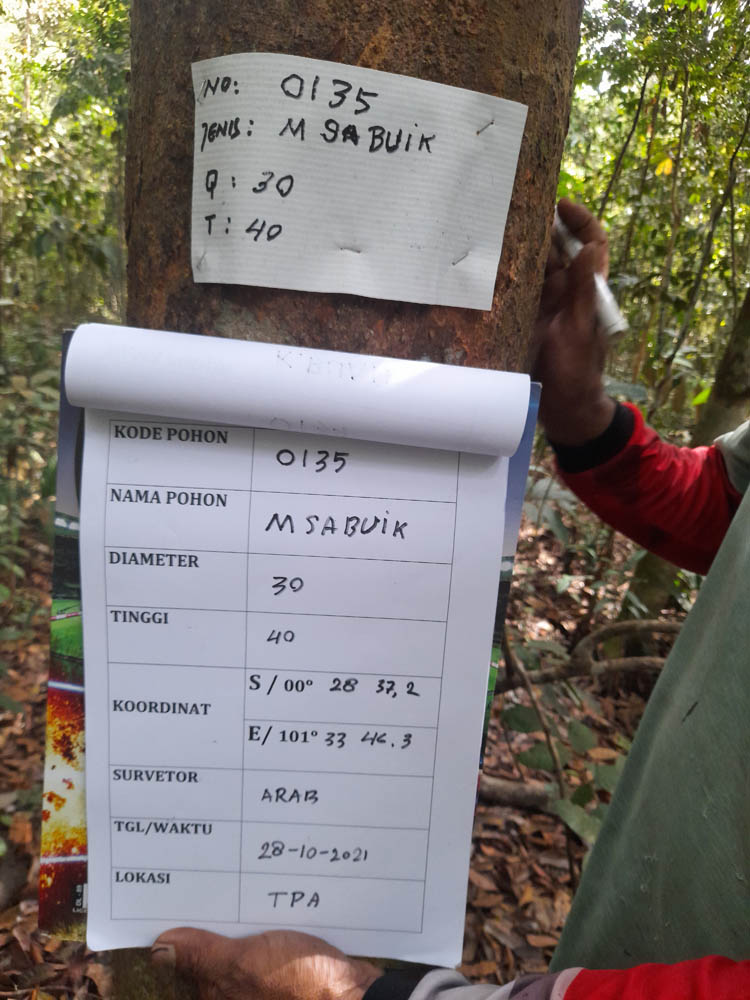 NO: 0135
JENIS: M SABUIK
Q: 30
T: 40
KODE POHON 0135
NAMA POHON M SABUIK
DIAMETER 30
TINGGI 40
KOORDINAT
S / 00° 28 37,2
E/ 101° 33 46.3
SURVETOR ARAB
TGL/WAKTU 28-10-2021
LOKASI TPA